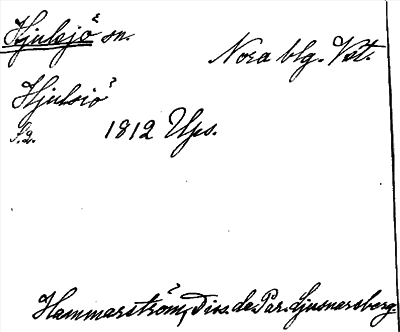 Hjulsjö sn.
Nora blg. Vst.
Hjulsiö
S. 2. 1812 Ups.
Hammarström, Diss. de Par. Ljusnarsberg.